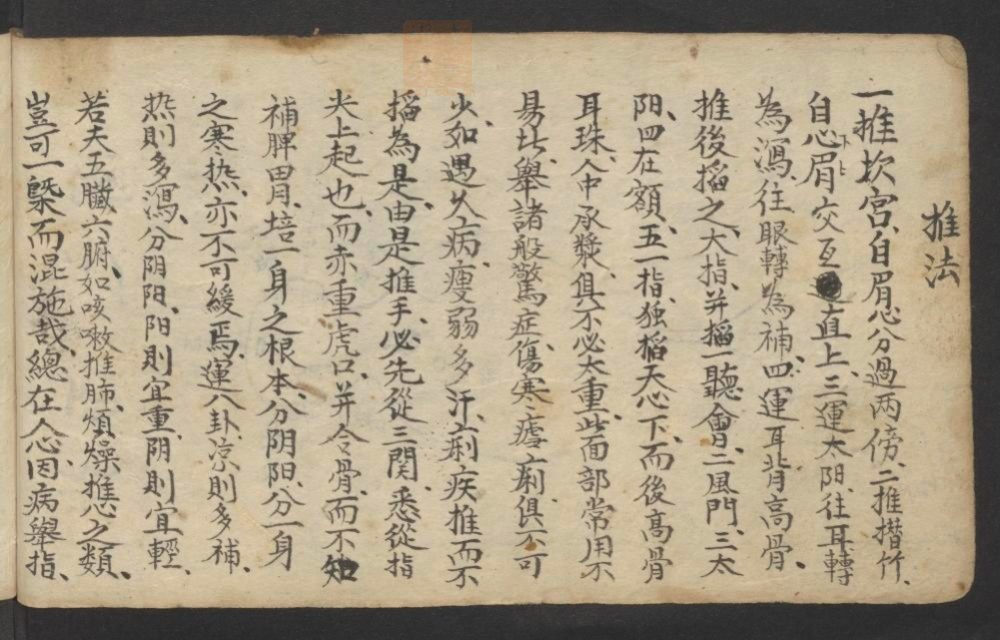 推法
一推坎宮、自眉心分過両傍、二推攅竹、
自心眉交互直上、三運太阳、往耳轉
為瀉、往眼轉為補、四運耳背高骨、
推後掐之、大指并掐、一聽會、二風門、三太
阳、四在額、五一指独掐天心下、而後高骨
耳珠、人中承漿、俱不必太重、此面部常用不
易此、舉諸般驚症、傷寒瘧痢、俱不可
少、如遇久病瘦弱、多汗、痢疾、推而不
掐為是、由是推手、必先從三関、悉從指
尖上起也、而赤重虎口、并合骨、而不知
補脾胃、培一身之根本、分阴阳、分一身
之寒热、亦不可緩焉、運八卦、凉則多補、
热則多瀉、分阴阳、阳則宜重、阴則宜輕、
若夫五臓六腑、如咳嗽推肺、煩燥推心之類、
豈可一槩而混施哉、總在人心因病舉指、